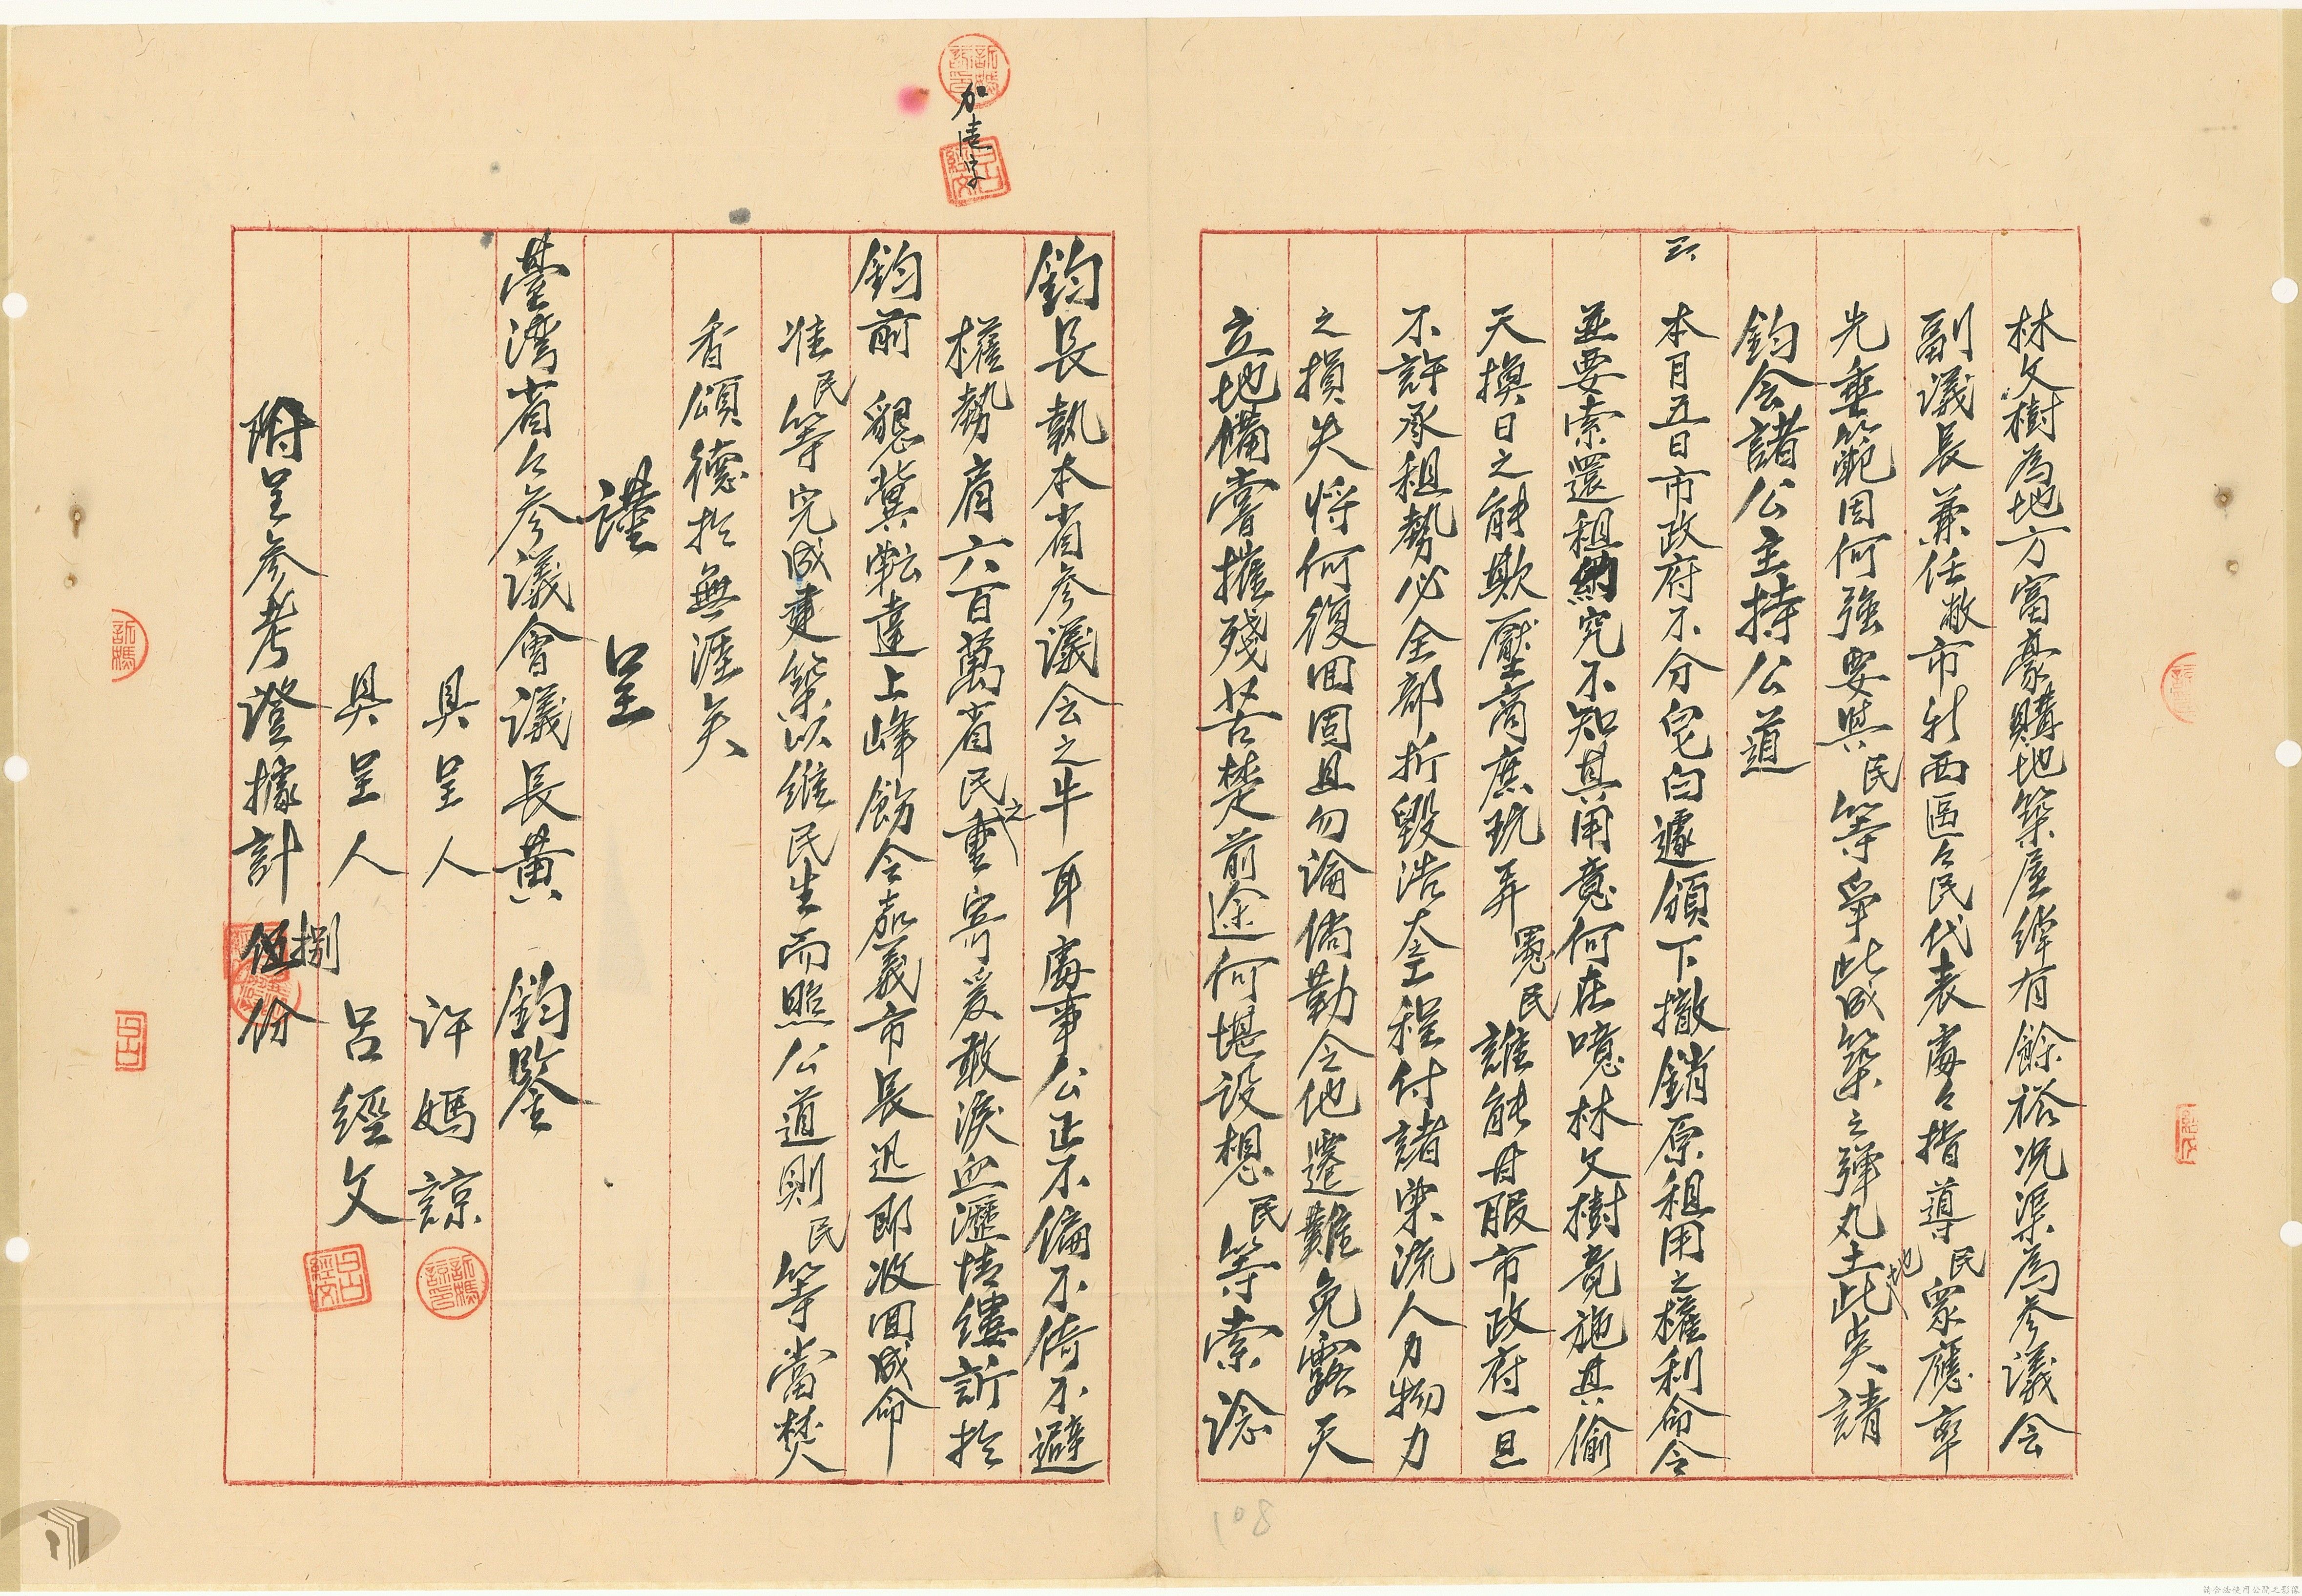 林文樹為地方富豪購地築屋綽有餘裕况渠為參議会
副議長兼任敝市新西區々民代表處々指導民眾應率
先垂範因何強要與民等爭此咸築之彈丸土地此実請
鈞会諸公主持公道
三、本月五日市政府不分皂白遽頒下撤銷原租用之權利命令
並要索還租納究不知其用意何在噫林文樹竟施其偷
天換日之能欺壓商庶玩弄愚民誰能甘服市政府一旦
不許承租勢必全部折毀浩大工程付諸東流人力物力
之損失將何復回固且勿論倘勒令他遷難免露天
立地備嘗摧殘苦楚前途何堪设想民等索諗
鈞長執本省參議会之牛耳處事公正不偏不倚不避
權勢肩六百萬省民之重寄爰敢淚血瀝情縷訴於
鈞前懇冀転達上峰飭令嘉義市長迅即收回成命
准民等完成建築以維民生而照公道則民等當焚
香頌德於無涯矣
謹呈
臺灣省々參議會議長黃 鈞鑒
具呈人 許媽諒
具呈人 呂經文
附呈參考證據計捌份
加壹字
呂經文
108
請合法使用公開之影像